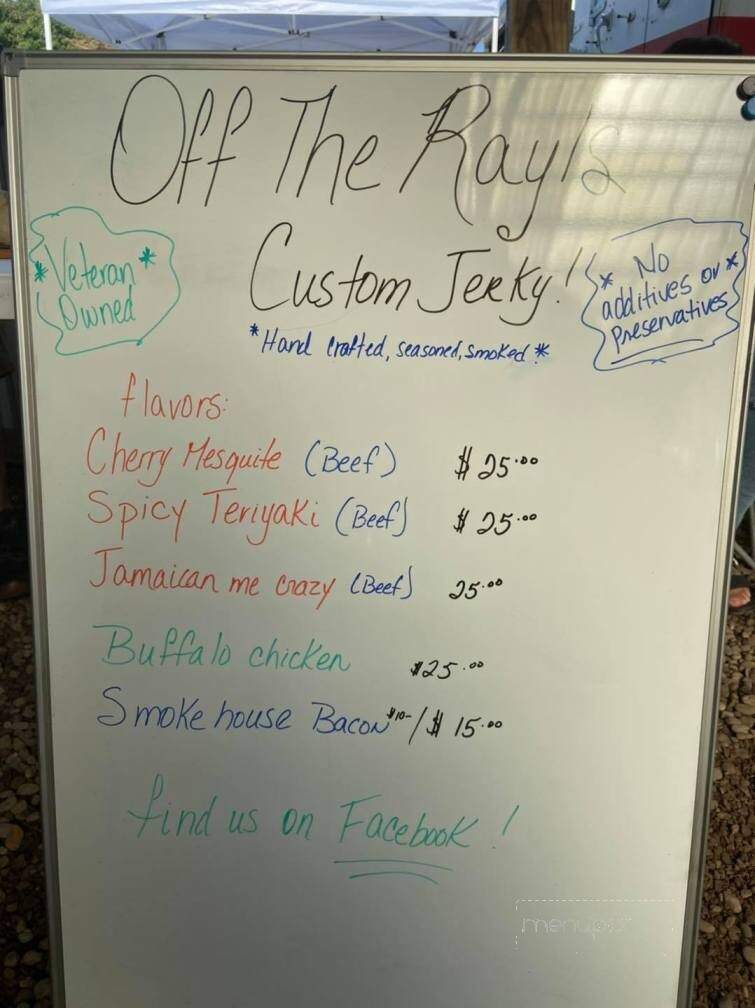 Off The Rayls
Custom Jerky!
*Veteran*
Owned
* No
additives or *
preservatives
*Hand Crafted, seasoned, smoked!*
flavors:
Cherry Mesquite (Beef) $25.00
Spicy Teriyaki (Beef) $25.00
Jamaican me crazy (Beef) 25.00
Buffalo chicken $25.00
Smoke house Bacon $10-/$15.00
find us on Facebook!